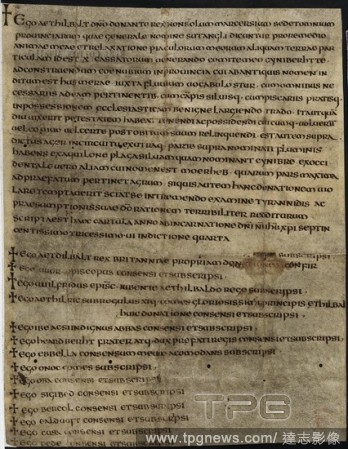 ✝ Ego aethilbalt dño donante rex non solum marcersium sed et omnium
prouinciarum quae generale nomine sutangli dicuntur pro remedio
animae meae et relaxatione piaculorum meorum aliquam terrae par
ticulam id est x cassatorum uenerando comite meo cyniberhtte
ad construendum coenubium in prouincia cui ab antiquis nomen in
ditum est husmerae iuxta fluuium uocabulo stur cum omnibus ne
cessariis ad eam pertinentib. cum campis siluisq. cum piscariis pratisq.
in possessionem ecclesiasticam benigne largiendo trado. ita ut quam
diu uixerit potestatem habeat tenendi ac possidendi cuicumq. uoluerit
uel eo uiuo uel certe post obitum suum relinquendi. est autem supra
dictus ager in circuitu ex utraq. parte supra nominati fluminis
habens ex aquilone plaga siluam quam nominant cynibre ex occi
dentale uero aliam cui nomen est moerheb quarum pars maxima
ad praefatum pertinet agrum. siquis autem hanc donationem uio
lare temptauerit sciat se in tremendo examine tyrannidis ac
praesumptionis suae dō rationem terribiliter redditurum
scripta est haec cartula anno ab incarnatione dni nri ihu xpi septin
centissimo tricessimo ui indictione quarta
✝ ego aetdilbalt rex britanniae propriam donationem confirmaui subscripsi.
✝ ego uuor episcopus consensi et subscripsi
✝ ego uuilfridus episc. iubente aethilbaldo rege subscripsi.
✝ ego aethilric subregulus atq. comes gloriosissimi principis ethilbaldi
huic donatione consensi et subscripsi.
✝ ego ibe ac si indignus abbas consensi et subscripsi.
✝ ego heardberht frater atq. dux praefati regis consensi et subscripsi.
✝ ego ebbella consensum meum accomodans subscripsi
✝ ego onoc comes subscripsi.
✝ ego oba consensi et subscripsi
✝ ego sigibed consensi et subscripsi
✝ ego bercol consensi et subscripsi
✝ ego ealduuft consensi et subscripsi
✝ ego cusa consensi et subscripsi
✝ ego pede consensi et subscripsi
TPG
www.tpgnews.com / 達志影像